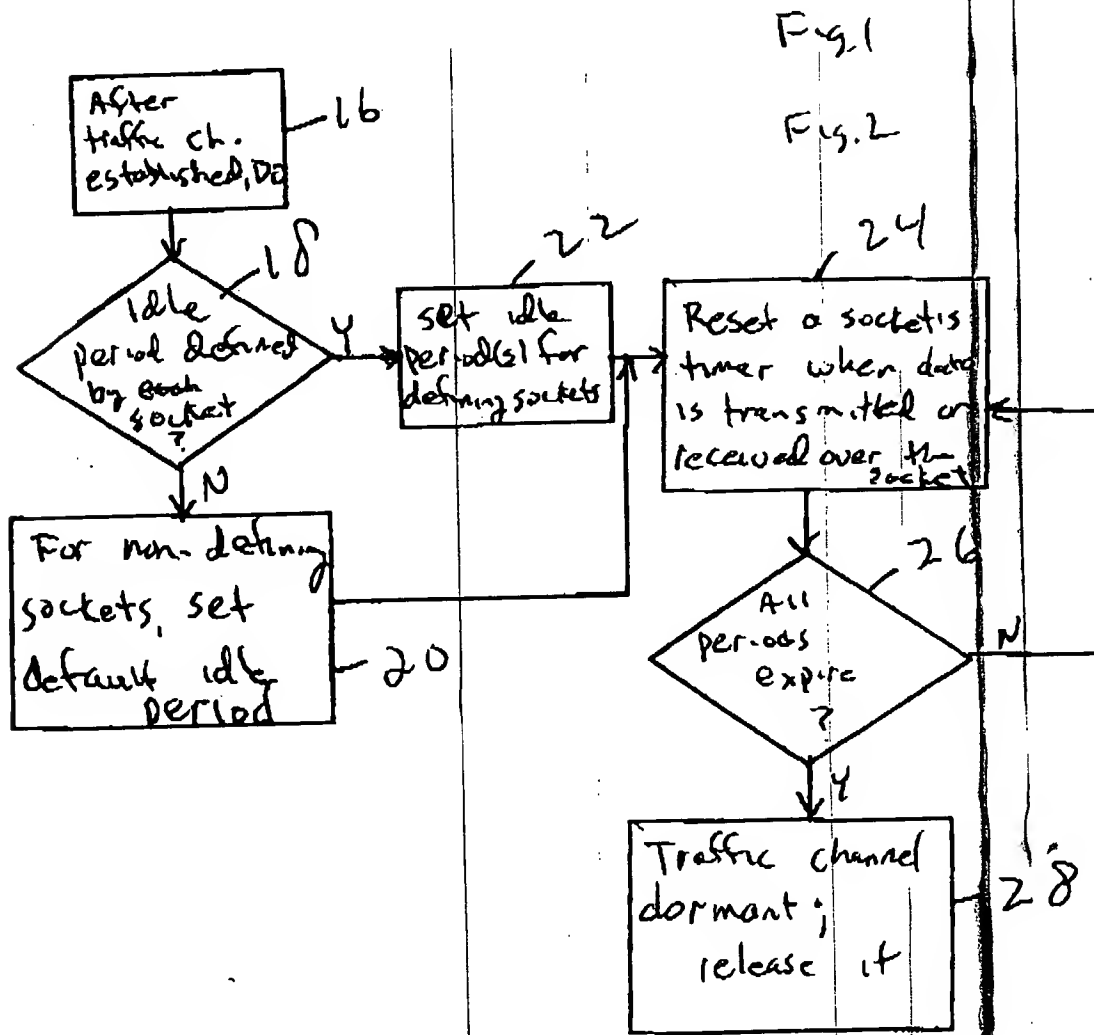 Fig.1
Fig.2
After
traffic ch.
established, DO
16
18
Idle
period defined
by
socket
?
Y
N
22
set idle
period(s) for
defining sockets
For non-defining
sockets, set
default idle
period
20
24
Reset a socket's
timer when data
is transmitted or
received over the
socket
26
All
periods
expire
?
N
Y
Traffic channel
dormant;
release it
28